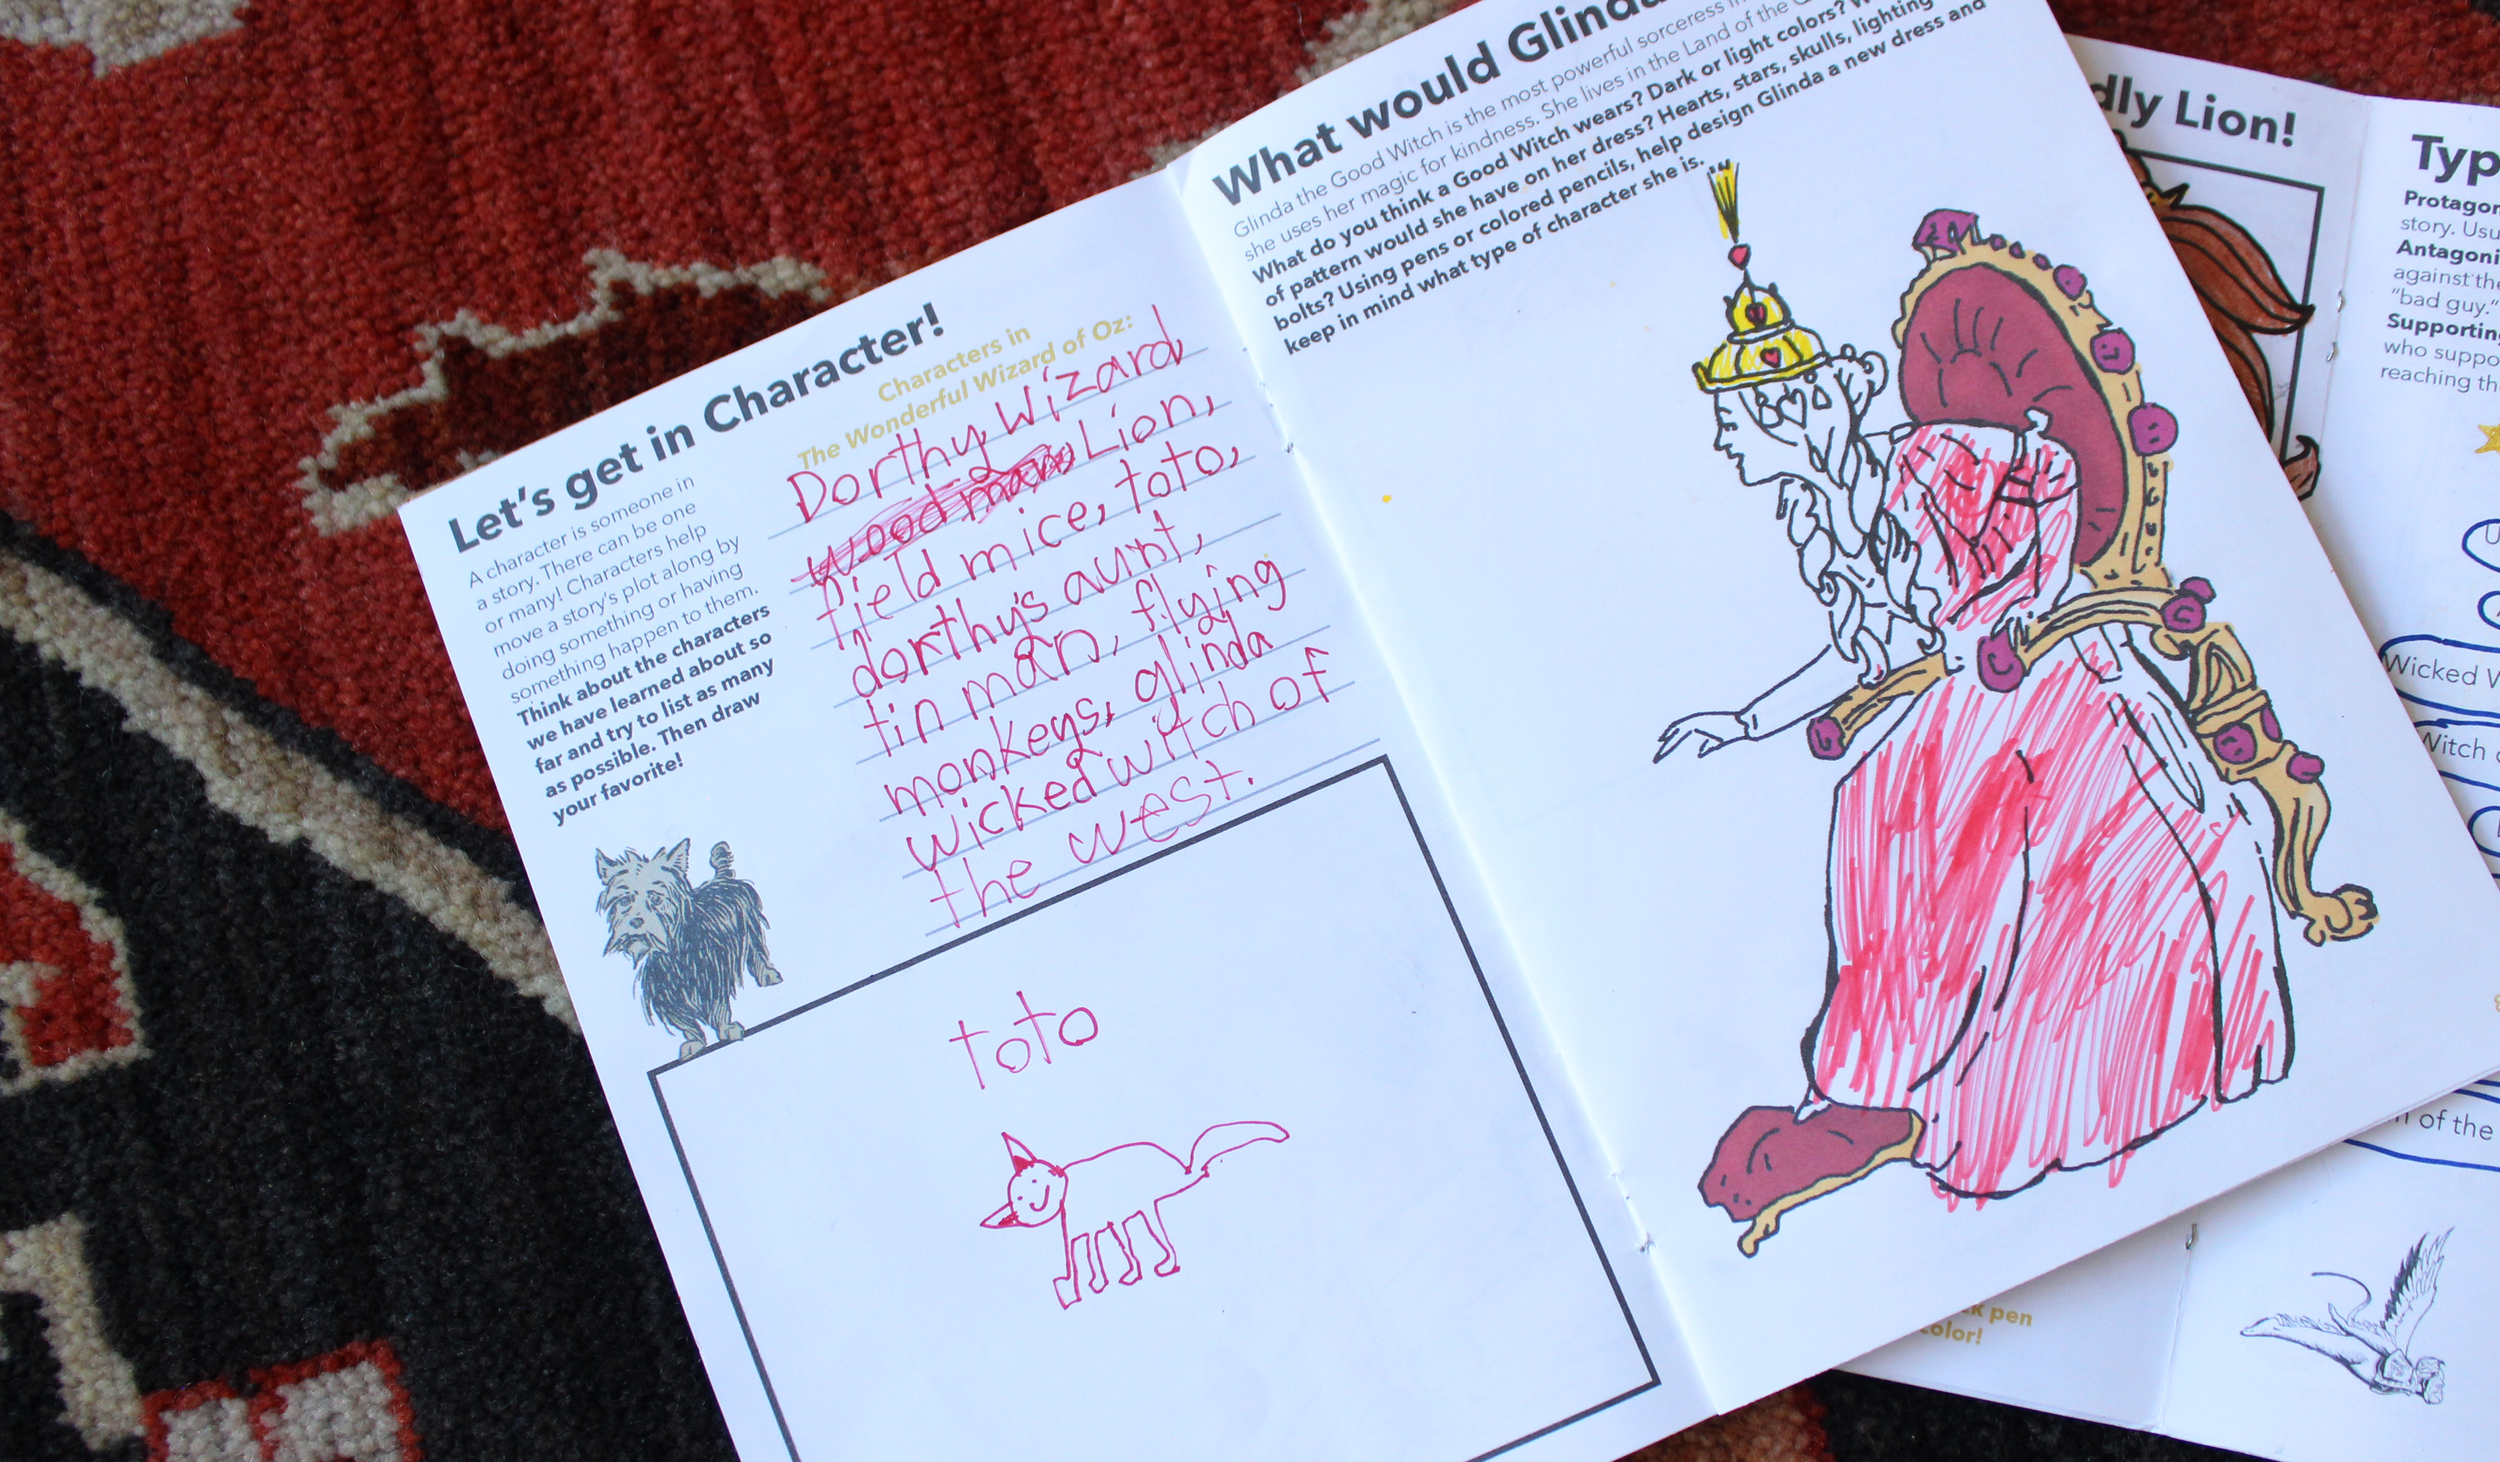 Let's get in Character!
A character is someone in
a story. There can be one
or many! Characters help
move a story's plot along by
doing something or having
something happen to them.
Think about the characters
we have learned about so
far and try to list as many
as possible. Then draw
your favorite!
Characters in
The Wonderful Wizard of Oz:
Dorthy, Wizard,
woodman, Lion,
field mice, toto,
dorthy's aunt,
tin man, flying
monkeys, glinda
wicked witch of
the west.
toto
What would Glinda
Glinda the Good Witch is the most powerful sorceress
she uses her magic for kindness. She lives in the Land of the
What do you think a Good Witch wears? Dark or light colors?
of pattern would she have on her dress? Hearts, stars, skulls, lighting
bolts? Using pens or colored pencils, help design Glinda a new dress and
keep in mind what type of character she is.
Lion!
story.
against the
"bad guy."
who
reaching
Wicked
of the
pen